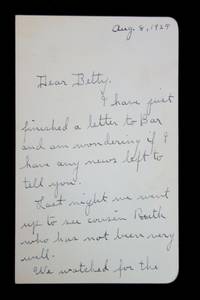 Aug. 8, 1929
Dear Betty,
I have just
finished a letter to Bar
and am wondering if I
have any news left to
tell you.
Last night we went
up to see cousin Beith
who has not been very
well.
We watched for the